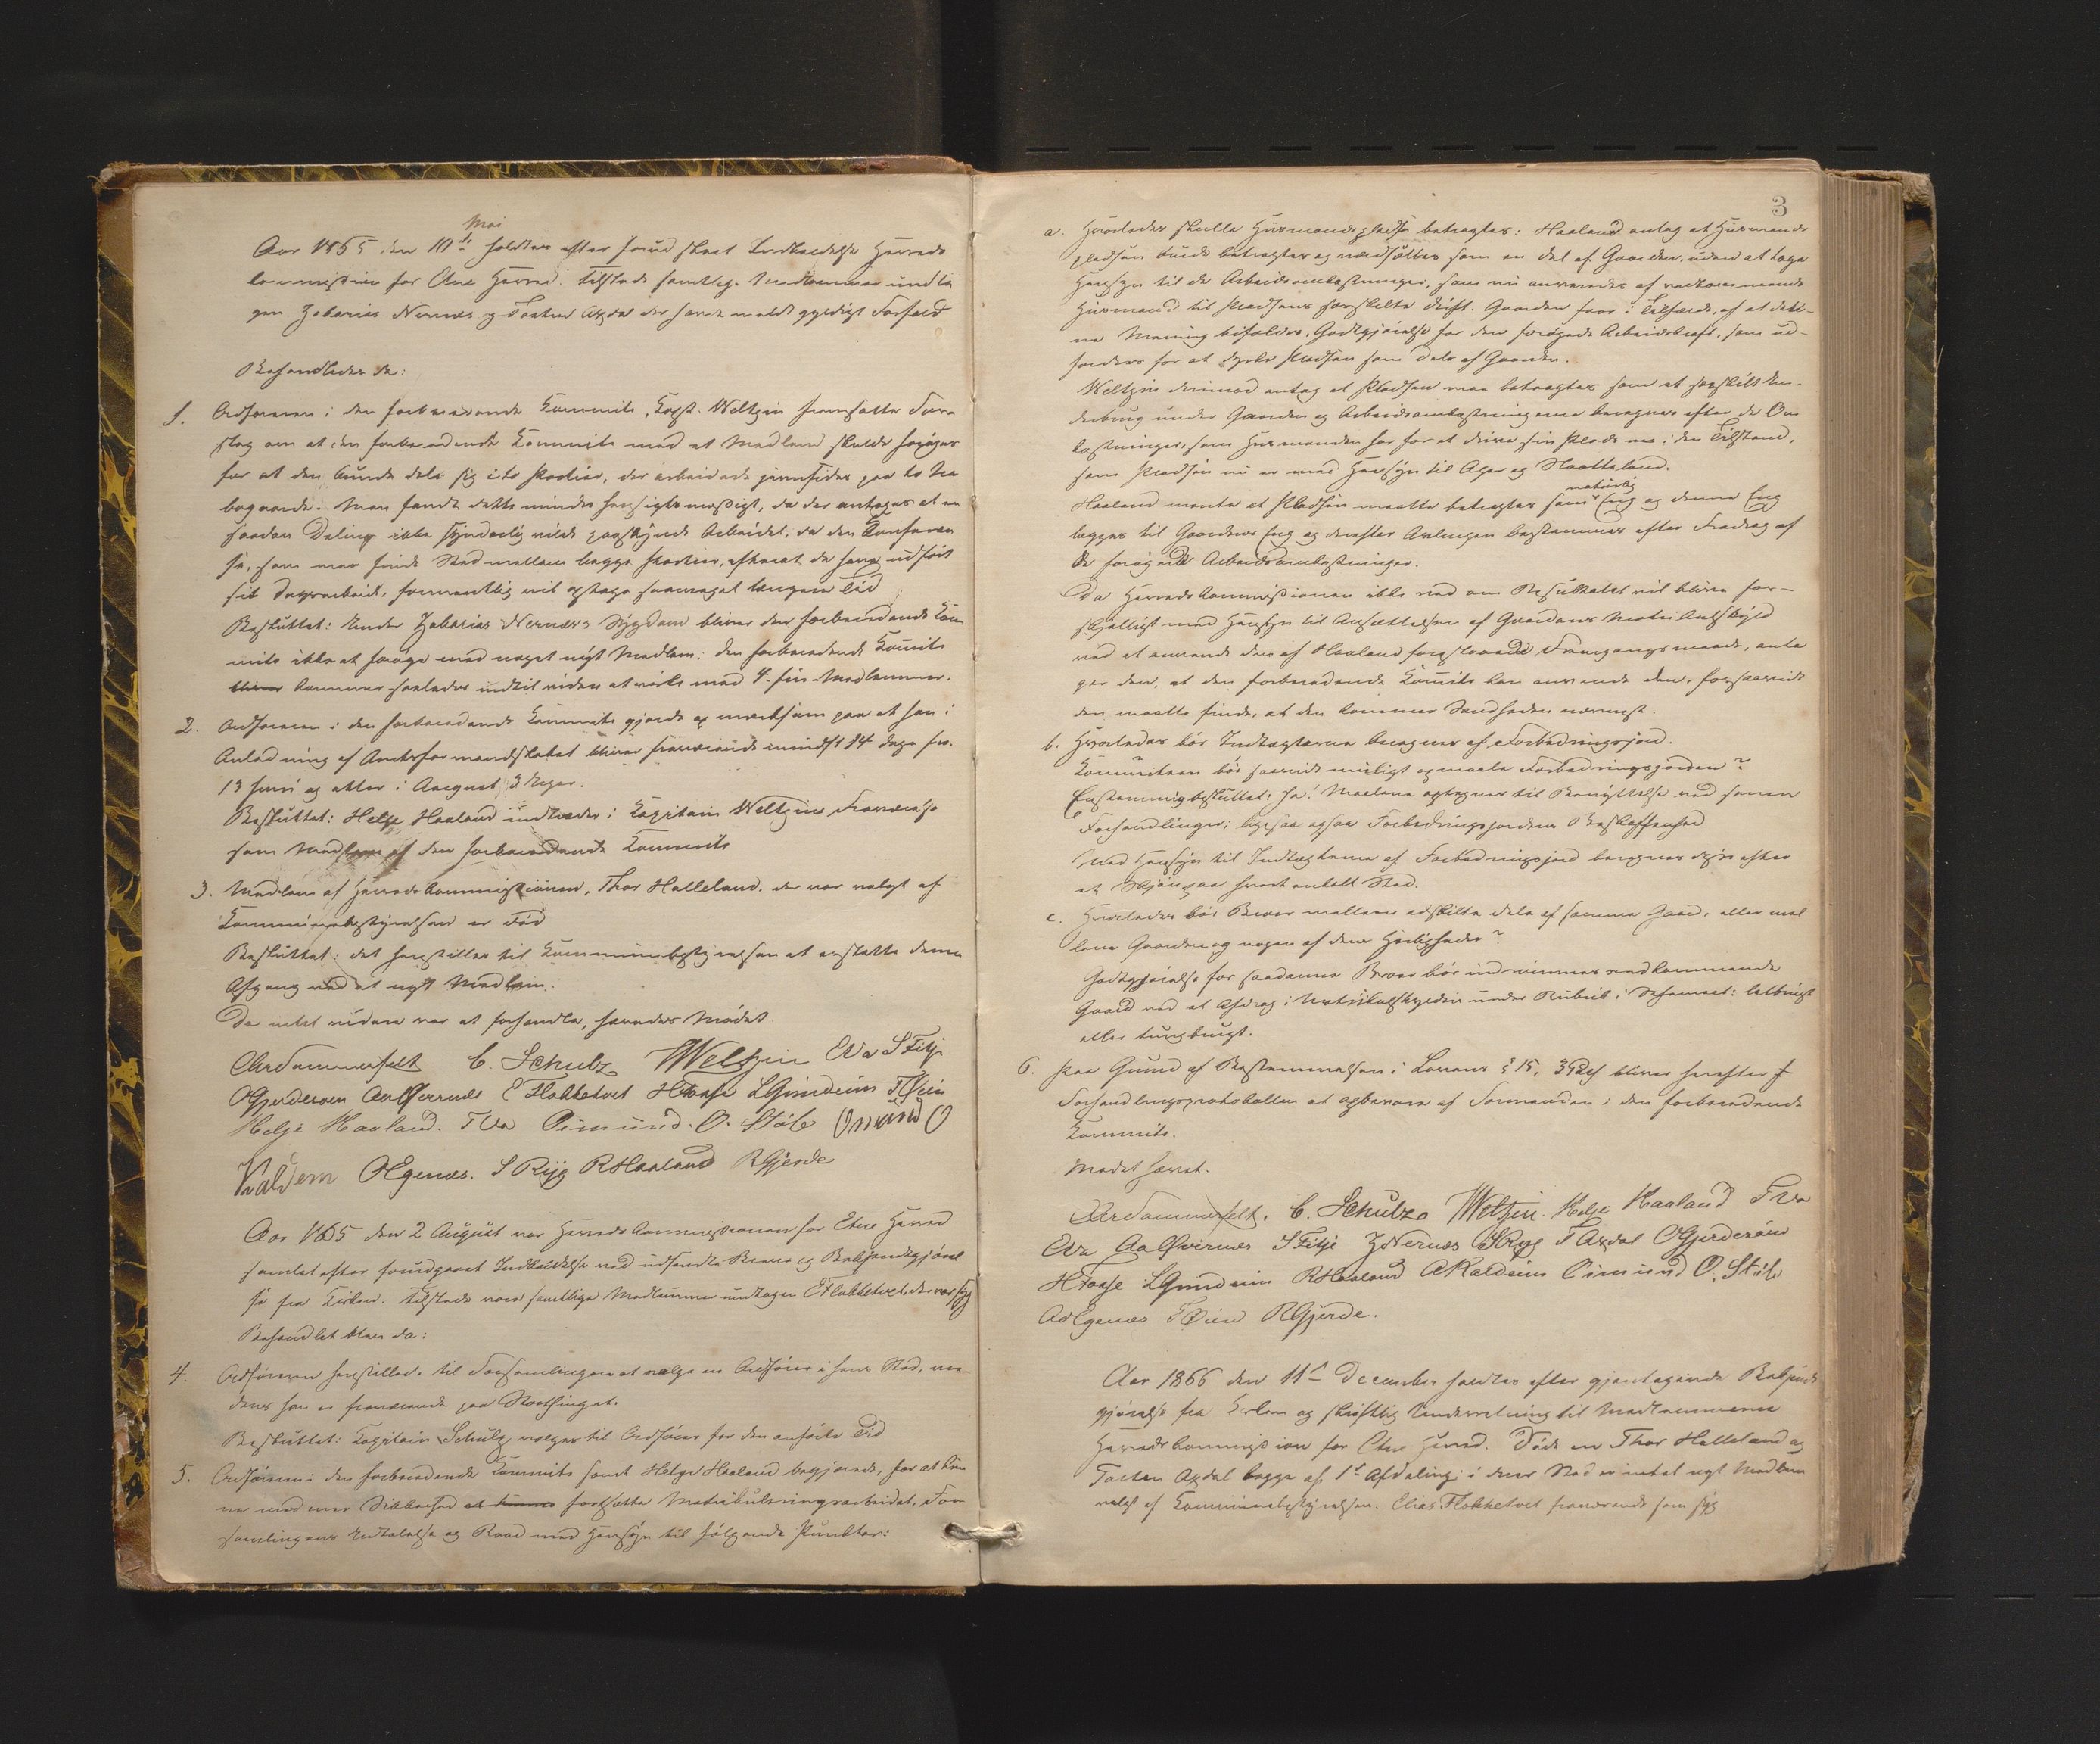 Mai
Aar 1865 den 10de holdtes efter forud skeet Indkaldelse Herreds
kommission for Etne Herred. Tilstede samtlige Medlemmer undta
gen Zakarias Nernæs og Torten Axdal der havde meldt gyldigt Forfald
Behandledes da:
1. Ordføreren i den forberedende Kommite, Capt. Weltzin fremsatte For
slag om at den forberedende Kommite med et Medlem skulde forøges
for at den kunde dele sig i to Partier, der arbeidede paa to Na
bogaarde. Man fandt dette mindre hensigtsmæssigt, da der antages at en
saadan Deling ikke synderlig vilde paaskynde Arbeidet, da den Konferen
se, som maa finde Sted mellem begge Partier, efterat de have udført
sit Dagsarbeide, formentlig vil optage saameget længere Tid
Besluttet: Under Zakarias Nernæs's Sygdom bliver den forberedende Kom
mite ikke at forøge med noget nyt Medlem: den forberedende Komite
bliver kommer saaledes indtil videre at virke med 4 fire Medlemmer.
2. Ordføreren i den forberedende Kommite gjorde opmærksom paa at han i
Anledning af Amtsformandskabet bliver fraværende mindst 14 Dage fra
13 Juni og atter i August 3 Uger.
Besluttet: Helge Haaland indtræder i Kapitain Weltzins Fraværelse
som Medlem af den forberedende Kommite
3. Medlem af Herredskommissionen, Thor Halleland, der var valgt af
Kommunebestyrelsen er død
Besluttet: det henstilles til Kommunebestyrelsen at erstatte denne
Afgang med et nyt Medlem.
Da intet videre var at forhandle, hævedes Mødet.
C. Schulz Weltzin S Fitje
OGjerdesøen E Flokketvet HFrafse LGrindeim TØien
Helje Haaland. Eimund. O. Støle
OEgenes. S Ryg RHaaland RGjerde
Aar 1865 den 2 August var Herredskommissionen for Etne Herred
samlet efter foregaaet Indkaldelse ved udsendte Breve og Bekjendtgjørel
se fra Kirken. Tilstede vare samtlige Medlemmer undtagen E Flokketvet, der var syg
Behandlet blev da:
4. Ordføreren henstillede til Forsamlingen at vælge en Ordfører i hans Sted, me
dens han er fraværende paa Storthinget.
Besluttet: Capitain Schulz vælges til Ordfører for den anførte Tid
5. Ordføreren i den forberedende Kommite samt Helge Haaland begjærede, for at kun
ne med mer Sikkerhed at kunne fortsætte Matrikuleringsarbeidet, For
samlingens Udtalelse og Raad med Hensyn til følgende Punkter:
3
a. Hvorledes skulle Husmandspladse betragtes: Haaland antog at Husmands
pladsen burde betragtes og værdsættes som en Del af Gaarden, uden at tage
Hensyn til de Arbeidsomkostninger, som nu anvendes af vedkommende
Husmand til Pladsens særskilte Drift. Gaarden faar i Tilfælde, af at den
ne Mening bifaldes, Godtgjørelse for den forøgede Arbeidskraft, som ud-
fordres for at dyrke Pladsen som Dele af Gaarden.
Weltzin derimod antog at Pladsen maa betragtes som et særskilt Un-
derbrug under Gaarden og Arbeidsomkostningerne beregnes efter de Om
kostninger, som Husmanden har for at drive sin Plads i den Tilstand,
som Pladsen nu er med Hensyn til Ager og Slaatteland.
Haaland mente at Pladsen maatte betragtes som naturlig Eng og denne Eng
lægges til Gaardens Eng og derefter Avlingen bestemmes efter Fradrag af
de forøgede Arbeidsomkostninger.
Da Herredskommissionen ikke ved om Resultatet vil blive for-
skjelligt med Hensyn til Ansættelsen af Gaardens Matrikulskyld
ved at anvende den af Haaland foreslaaede Fremgangsmaade, anta
ger den, at den forberedende Komite kan anvende den, forsaavidt
den maatte finde, at den kommer Sandheden nærmest.
b. Hvorledes bør Indtægterne beregnes af Forbedringsjord.
Kommiteen bør saavidt muligt opmaale Forbedringsjorden?
Enstemmig besluttet: Ja! Maalene optegnes til Benyttelse ved senere
Forhandlinger; ligesaa ogsaa Forbedringsjordens Beskaffenhed
Med Hensyn til Indtægterne af Forbedringsjord beregnes disse efter
et Skjøn paa hvert enkelt Sted.
c. Hvorledes bør Veier mellem adskilte Dele af samme Gaard, eller mel
lem Gaarden og nogen af dens Herligheder?
Godtgjørelse for saadanne Veier bør indrømmes vedkommende
Gaard ved et Afdrag i Matrikulskylden under Rubrik i Schemaet: letbrugt
eller tungbrugt.
6. Paa Grund af Bestemmelsen i Lovens § 15, bliver herefter
Forhandlingsprotokollen at opbevare af Formanden i den forberedende
Kommite.
Mødet hævet.
C. Schulz Weltzin. Helje Haaland
S Fitje ZNernæs SRyg TAxdal OGjerdesøen
HFrafse LGrindeim RHaaland Eimund O. Støle
TØien RGjerde.
Aar 1866 den 11te December holdtes efter gjentagende Bekjendt
gjørelse fra Kirken og skriftlig Underretning til Medlemmerne
Herredskommission for Etne Herred. Døde ere Thor Halleland og
Torten Axdal begge af 1ste Afdeling i deres Sted er intet nyt Medlem
valgt af Kommunebestyrelsen. Elias Flokketvet fraværende som syg